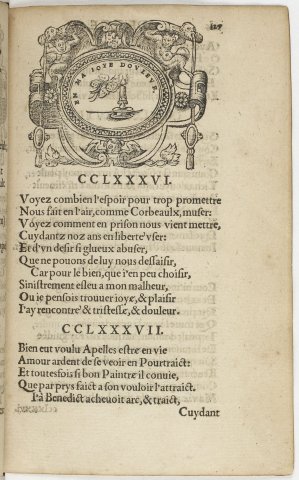 EN MA IOYE DOVLEVR.
CCLXXXVI.
Voyez combien l'espoir pour trop promettre
Nous fait en l'air, comme Corbeaulx, muser:
Voyez comment en prison nous vient mettre,
Cuydantz noz ans en liberté vser:
Et d'vn desir si glueux abuser,
Que ne pouons de luy nous dessaisir,
Car pour le bien, que i'en peu choisir,
Sinistrement esleu a mon malheur,
Ou ie pensois trouuer ioye, & plaisir
I'ay rencontré & tristesse, & douleur.
CCLXXXVII.
Bien eut voulu Apelles estre en vie
Amour ardent de se veoir en Pourtraict:
Et toutesfois si bon Paintre il conuie,
Que par prys faict a son vouloir l'attraict.
Ia Benedict acheuoit arc, & traict,
Cuydant